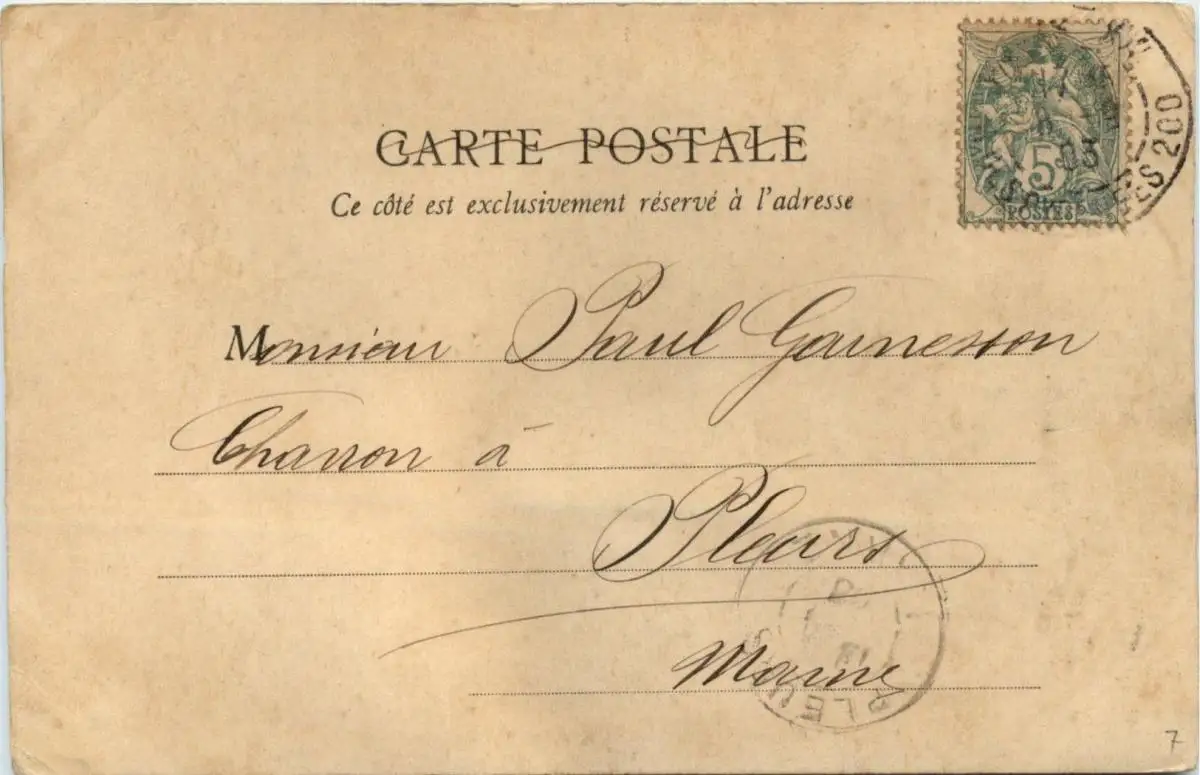 CARTE POSTALE
Ce côté est exclusivement réservé à l'adresse
5
POSTES
03
200
Monsieur Paul
Charron à
Pleurs
Marne
PLEU
7